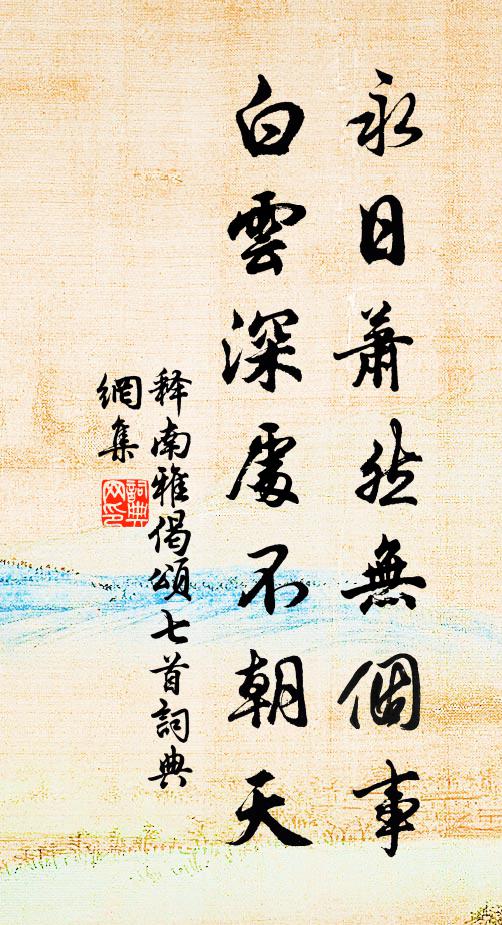 永日蕭然無個事
白雲深處不朝天
释南雅偈頌七首詞典
網集
詞典
网印